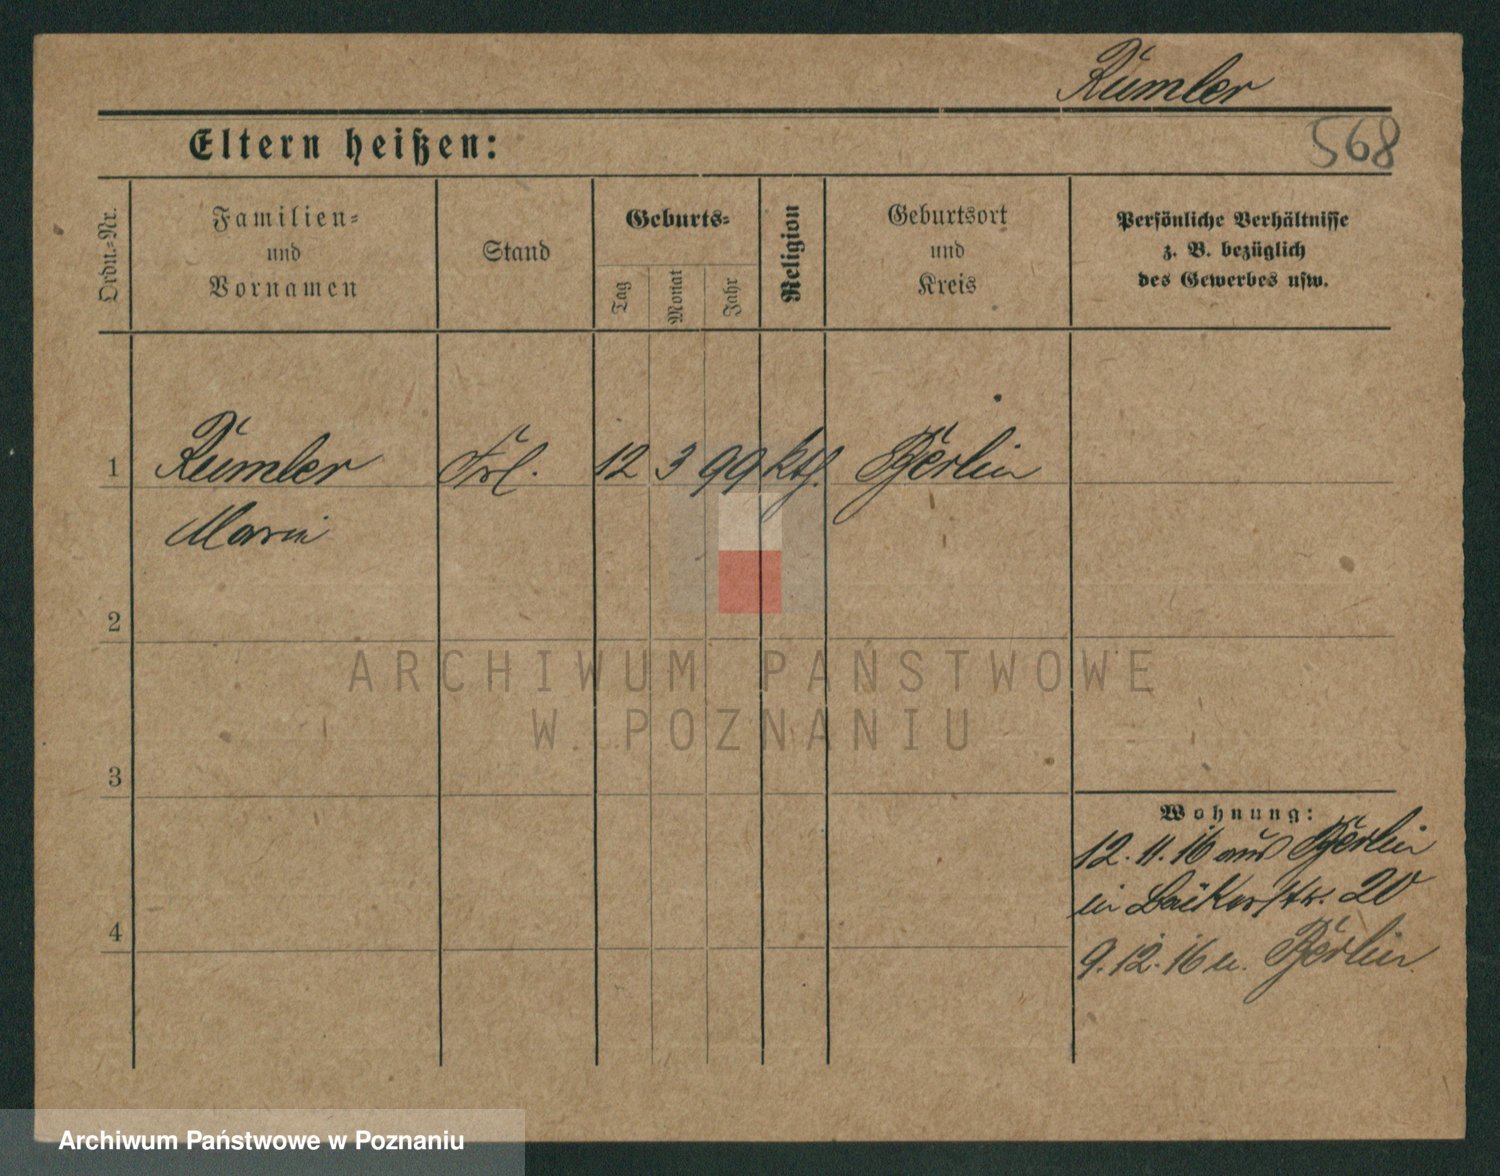 Rümler
Eltern heißen:
568
Ordn.=Nr.
Familien=
und
Vornamen
Stand
Geburts=
Tag
Monat
Jahr
Religion
Geburtsort
und
Kreis
Persönliche Verhältnisse
z. B. bezüglich
des Gewerbes usw.
1 Rümler Frl. 12 3 99 kth. Berlin
Marie
2
ARCHIWUM PAŃSTWOWE
W POZNANIU
3
Wohnung:
12.11.16 aus Berlin
in Bäckerstr. 20
4
9.12.16 n. Berlin
Archiwum Państwowe w Poznaniu